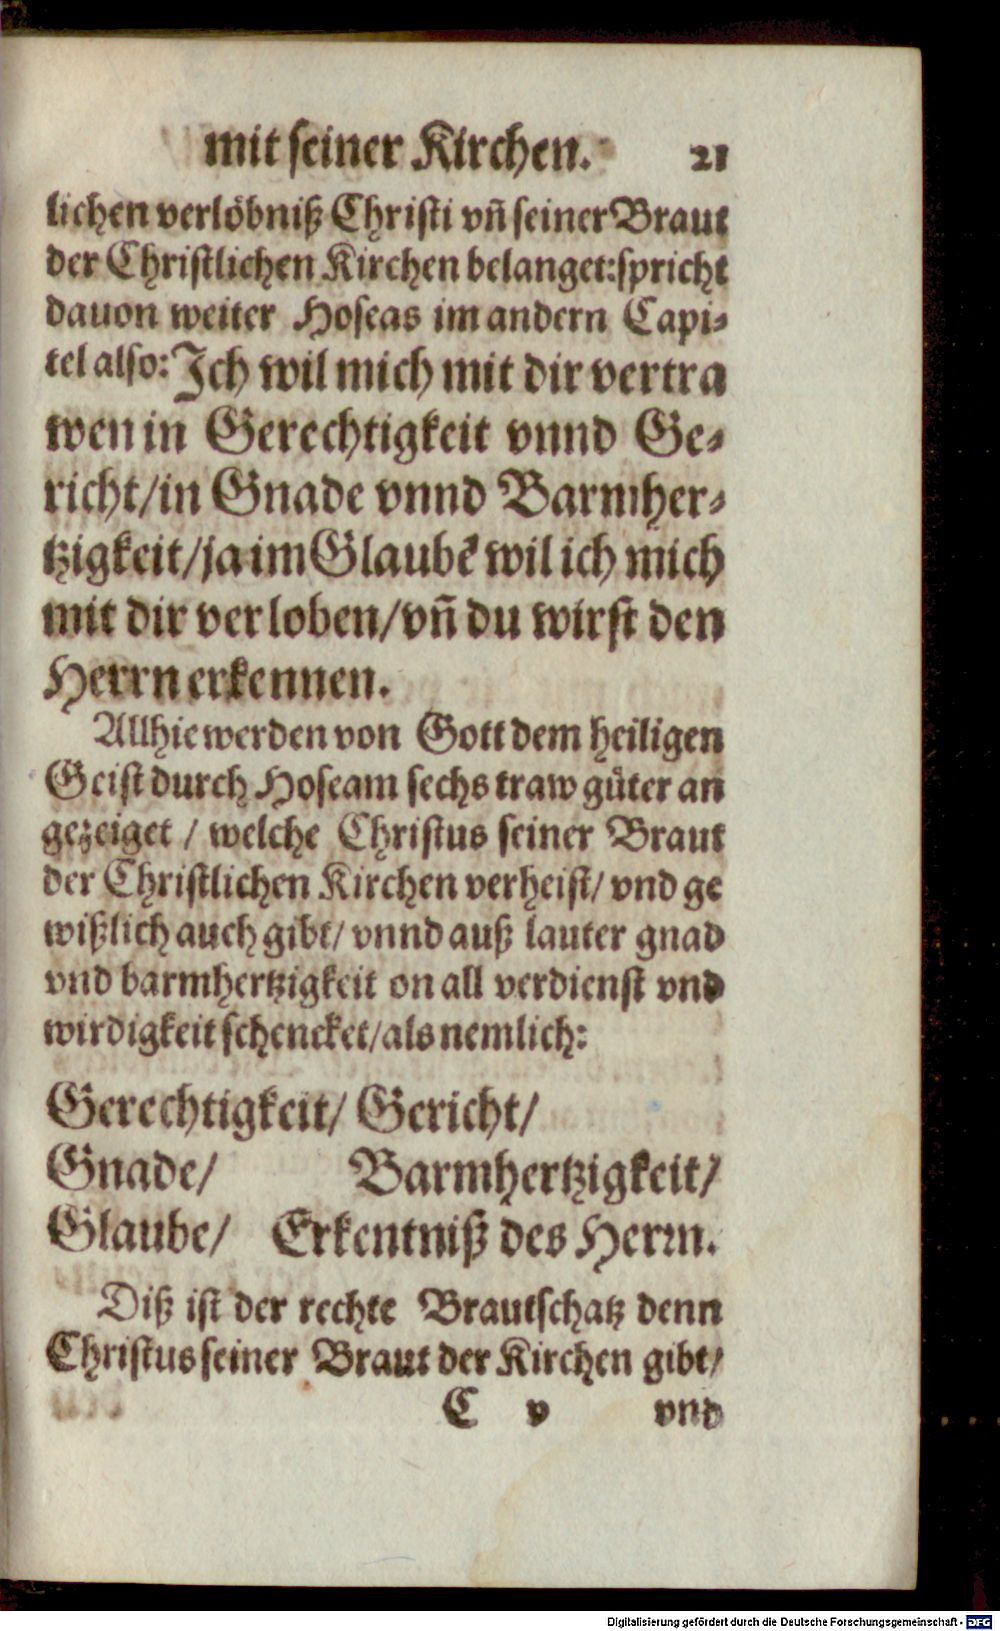 mit seiner Kirchen. 21
lichen verlöbniß Christi vñ seiner Braut
der Christlichen Kirchen belanget: spricht
dauon weiter Hoseas im andern Capi⸗
tel also: Ich wil mich mit dir vertra
wen in Gerechtigkeit vnnd Ge⸗
richt/ in Gnade vnnd Barmher⸗
tzigkeit/ ja im Glaubẽ wil ich mich
mit dir verloben/ vñ du wirst den
Herrn erkennen.
Allhie werden von Gott dem heiligen
Geist durch Hoseam sechs traw güter an
gezeiget / welche Christus seiner Braut
der Christlichen Kirchen verheist/ vnd ge
wißlich auch gibt/ vnnd auß lauter gnad
vnd barmhertzigkeit on all verdienst vnd
wirdigkeit schencket/ als nemlich:
Gerechtigkeit/ Gericht/
Gnade/ Barmhertzigkeit/
Glaube/ Erkentniß des Herrn.
Diß ist der rechte Brautschatz denn
Christus seiner Braut der Kirchen gibt/
C v vnd
Digitalisierung gefördert durch die Deutsche Forschungsgemeinschaft - DFG